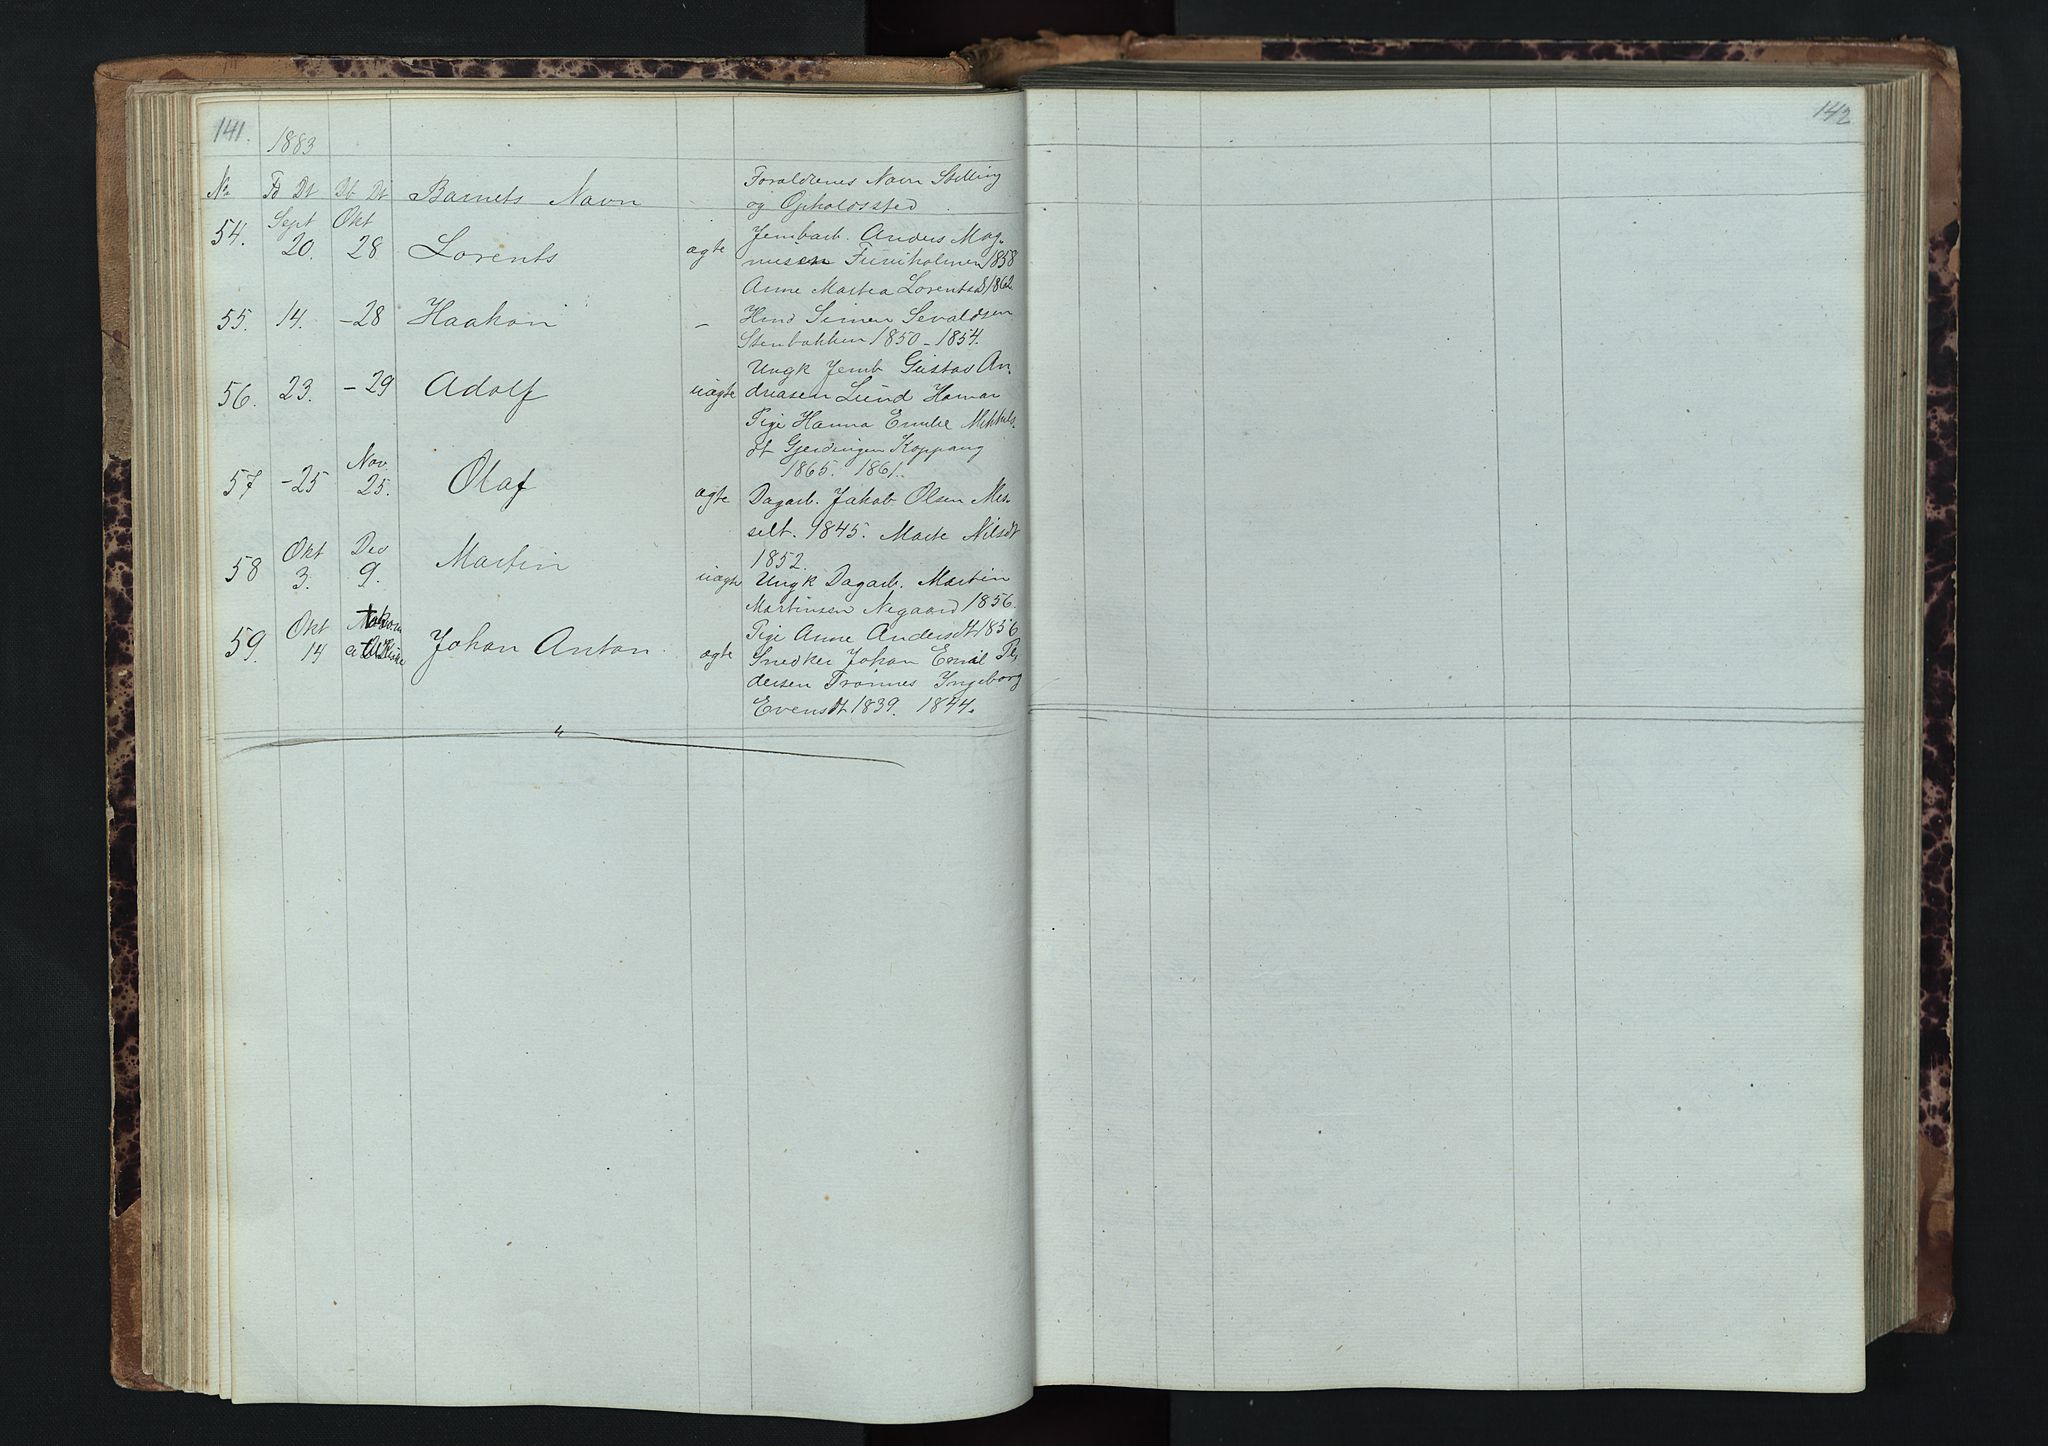 141.
1883
No Fd Dt Db Dt Barnets Navn Forældrenes Navn Stilling
og Opholdssted
54. Sept 20. Okt 28 Lorents ægte Jernbarb. Anders Mag-
nussen Furuholmen 1858
Anne Martea Lorentsd 1862
55. 14. - 28 Haakon - Hmd Simen Sevaldsen
Stenbakken 1850 - 1854.
56. 23. - 29 Adolf uægte Ungk Jernb Gustav An-
dreasen Lund Hamar
Pige Hanna Emilie Mikkels-
dt Gjerdingen Koppang
1865. 1861.
57 - 25 Nov. 25. Olaf ægte Dagarb. Jakob Olsen Mes-
selt. 1845. Marte Nilsdt
1852.
58 Okt 3. Dec 9. Martin uægte Ungk Dagarb. Martin
Martinsen Negaard 1856.
Pige Anne Andersdt 1856
59. Okt 14 Johan Anton. ægte Snedker Johan Emil Pe-
dersen Trønnes Ingeborg
Evensdt 1839. 1844.
142